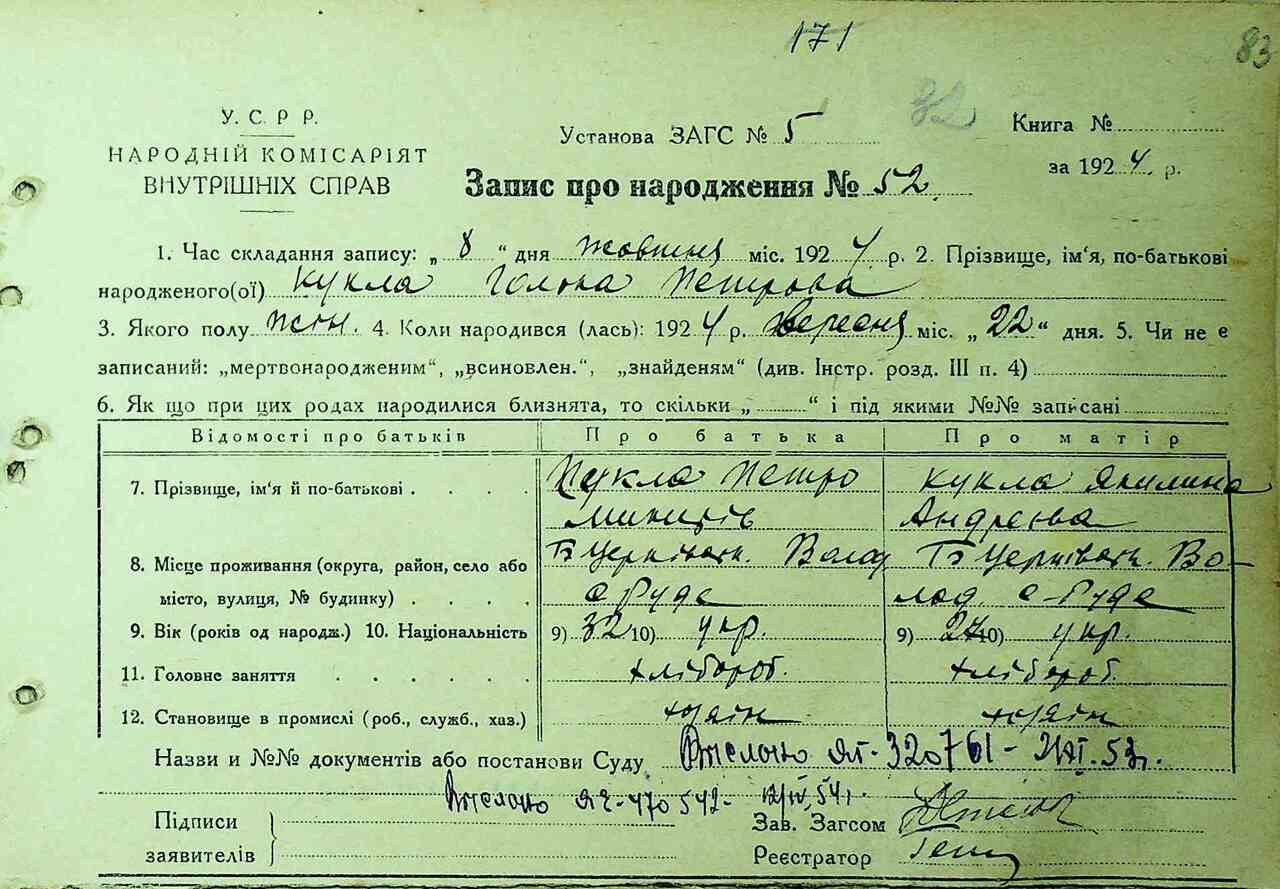 171
83
У. С. Р Р.
НАРОДНІЙ КОМІСАРІЯТ
ВНУТРІШНІХ СПРАВ
Установа ЗАГС № 5
32
Книга №
за 1924 р.
Запис про народження № 52
1. Час складання запису: „ 8 “ дня жовтня міс. 1924 р. 2. Прізвище, ім‘я, по-батькові
народженого(ої) Кукла Петрова
3. Якого полу жін. 4. Коли народився (лась): 1924 р. вересня міс. „ 22 “ дня. 5. Чи не є
записаний: „мертвонародженим“, „всиновлен.“, „знайденям“ (див. Інстр. розд. III п. 4)
6. Як що при цих родах народилися близнята, то скільки „ “ і під якими №№ записані
Відомості про батьків Про батька Про матір
7. Прізвище, ім‘я й по-батькові . . . . Кукла Петро Кукла Якилина
Андреєва
8. Місце проживання (округа, район, село або Б Церківськ. Волод Б Церківськ. Во-
місто, вулиця, № будинку) . . . . с Руда лод. с-Руда
9. Вік (років од народж.) 10. Національність 9) 32 10) укр. 9) 27 10) укр.
11. Головне заняття . . . . . . хлібороб. хлібороб.
12. Становище в промислі (роб., служб., хаз.) хазяїн хазяїн
Назви и №№ документів або постанови Суду 320761 - 53р.
470542- 12/IV.54г.
Підписи
заявителів
Зав. Загсом
Реєстратор